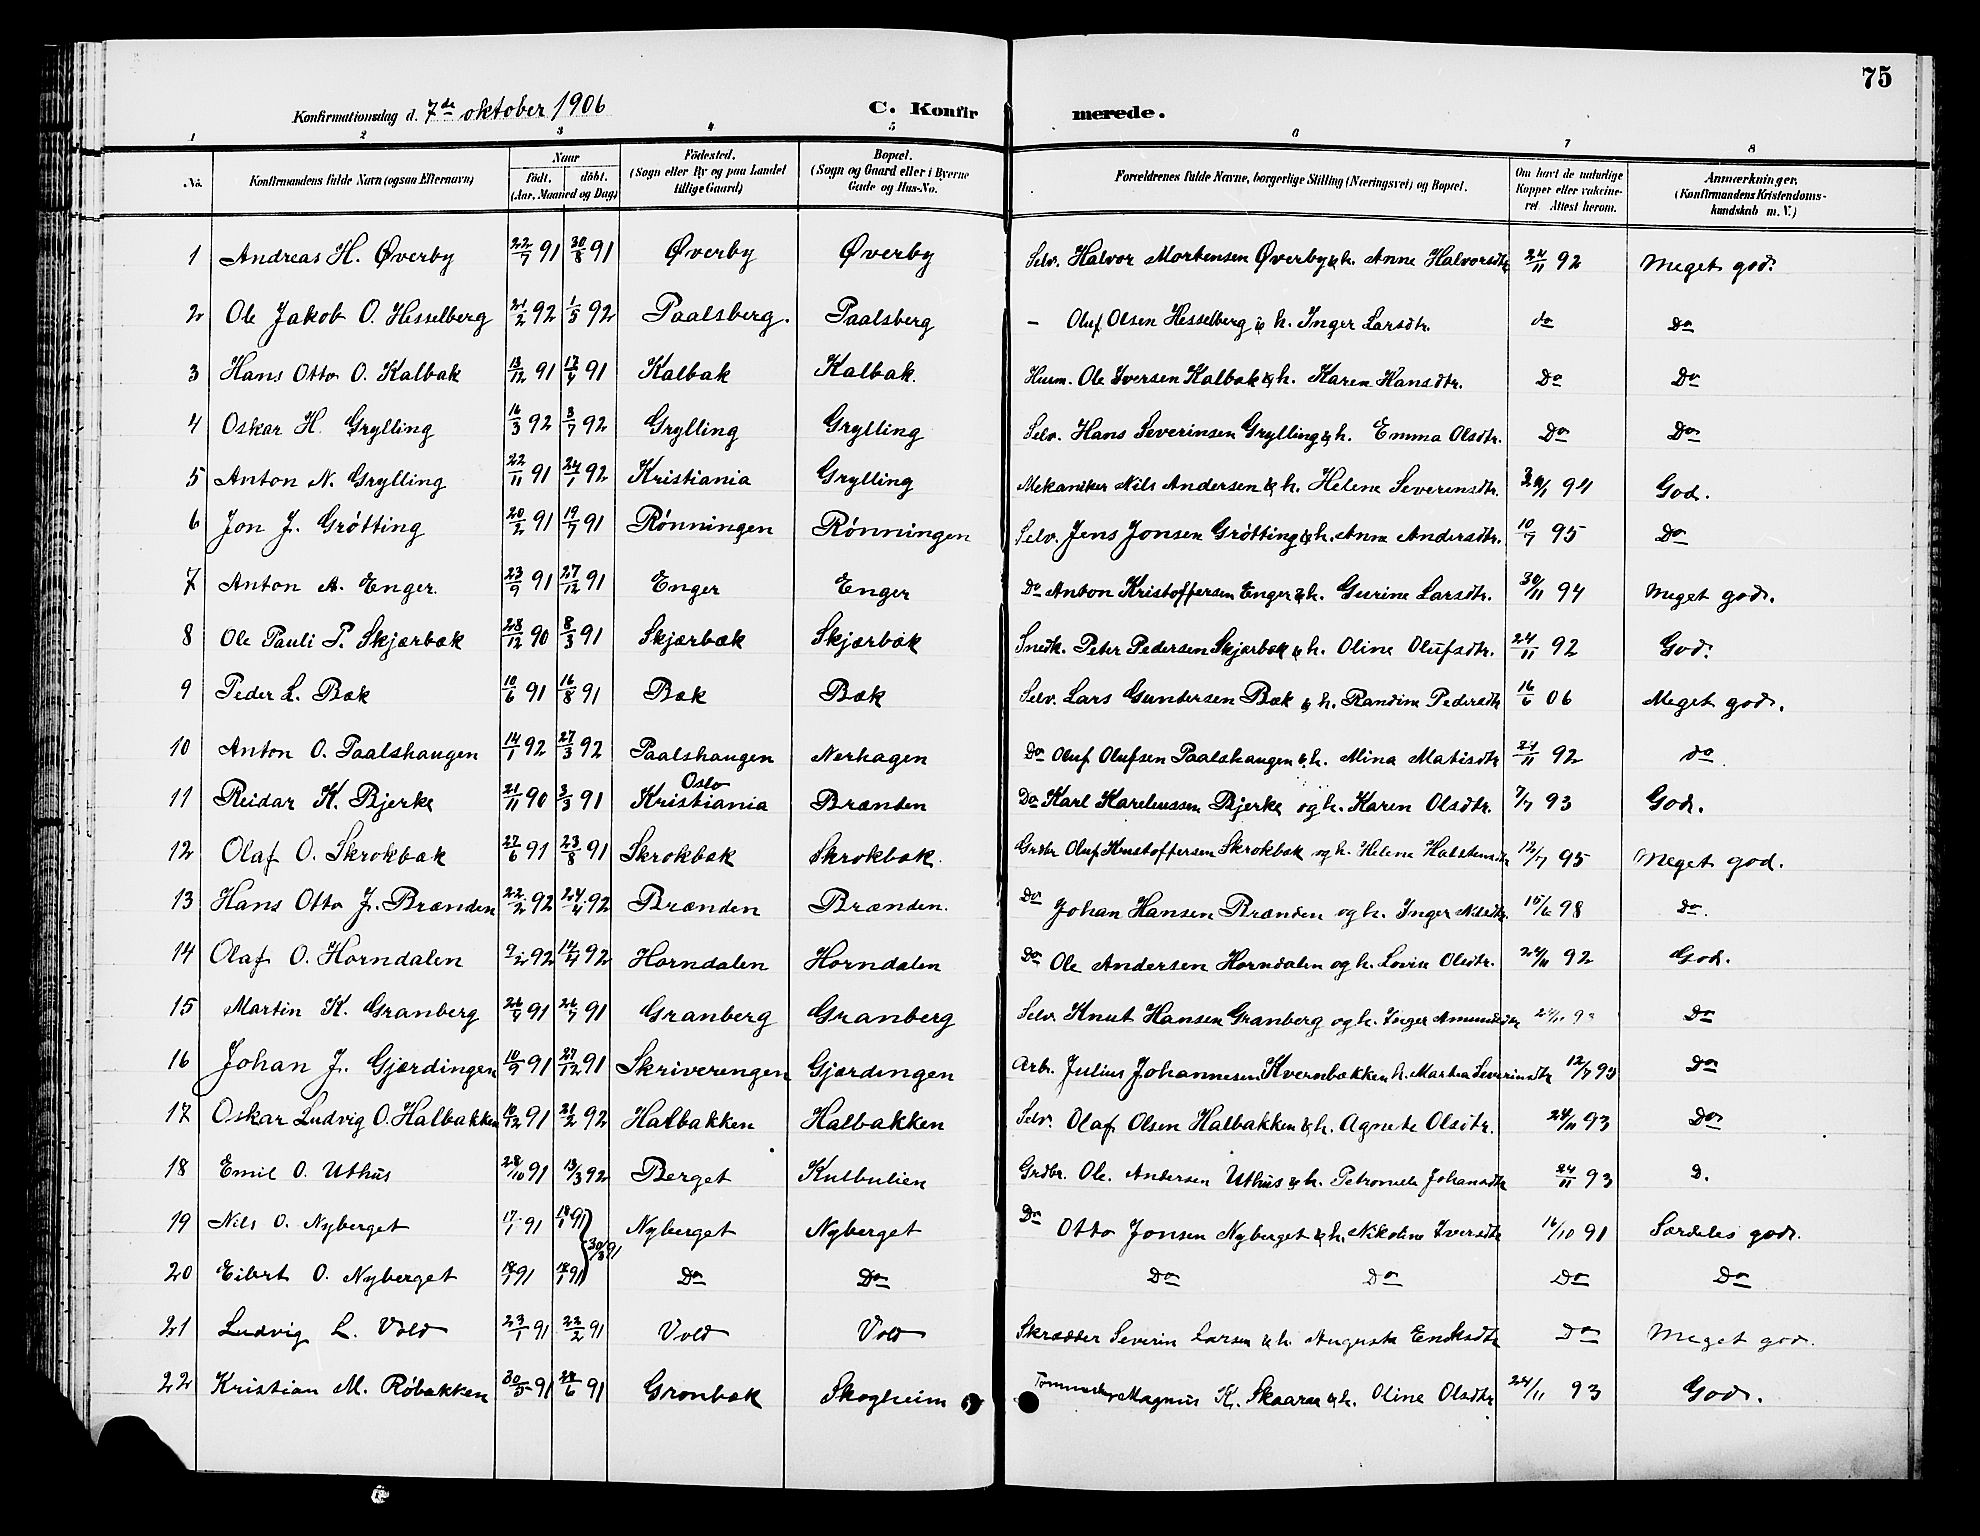 75
Konfirmationsdag d. 7de oktober 1906 C. Konfirmerede.
1 2 3 4 5 6 7 8
No. Konfirmandens fulde Navn (ogsaa Efternavn) Naar født. døbt. (Aar, Maaned og Dag) Fødested. (Sogn eller By og paa Landet tillige Gaard) Bopæl. (Sogn og Gaard eller i Byerne Gade og Hus-No. Forældrenes fulde Navne, borgerlige Stilling (Næringsvei) og Bopæl. Om havt de naturlige Kopper eller vakcineret Attest herom. Anmærkninger. (Konfirmandens Kristendomskundskab m. V.)
1 Andreas H. Øverby 22/7 91 30/8 91 Øverby Øverby Selv. Halvor Mortensen Øverby & h. Anne Halvorsdtr 24/11 92 Meget god.
2 Ole Jakob O. Hesselberg 21/2 92 1/5 92 Paalsberg. Paalsberg – Oluf Olsen Hesselberg & h. Inger Larsdtr. do Do
3 Hans Otto O. Kalbak 13/12 91 17/4 91 Kalbak Kalbak. Husm. Ole Iversen Kalbak & h. Karen Hansdtr. Do Do
4 Oskar H. Grylling 16/3 92 3/7 92 Grylling Grylling Selv. Hans Severinsen Grylling & h. Emma Olsdtr. Do Do
5 Anton N. Grylling 22/11 91 24/1 92 Kristiania Grylling Mekaniker Nils Andersen & h. Helene Severinsdtr. 94 God.
6 Jon J. Grøtting 20/2 91 19/7 91 Rønningen Rønningen Selv. Jens Jonsen Grøtting & h. Anne Andersdtr. 10/7 95 Do
7 Anton A. Enger. 23/9 91 27/12 91 Enger Enger Do Anton Kristoffersen Enger & h. Gurine Larsdtr. 30/11 94 Meget god.
8 Ole Pauli P. Skjærbæk 28/12 90 8/3 91 Skjærbæk Skjærbæk Snedk. Peter Pedersen Skjærbæk & h. Oline Olufsdtr. 24/11 92 God.
9 Peder L. Bæk 10/6 91 16/8 91 Bæk Bæk Selv. Lars Gundersen Bæk & h. Randine Pedersdtr 16/6 06 Meget god.
10 Anton O. Paalshaugen 14/1 92 27/3 92 Paalshaugen Nerhagen Do Oluf Olufsen Paalshaugen & h. Mina Matisdtr 24/11 92 do
11 Reidar K. Bjerke 21/11 90 3/3 91 Oslo Kristiania Brænden Do Karl Kareliussen Bjerke og h. Karen Olsdtr. 7/7 93 God.
12 Olaf O. Skrokbæk 27/6 91 23/8 91 Skrokbæk Skrokbæk. Grdbr Oluf Kristoffersen Skrokbæk og h. Helene Halstensdtr 12/7 95 Meget god.
13 Hans Otto J. Brænden 22/2 92 24/4 92 Brænden Brænden. Do Johan Hansen Brænden og h. Inger Nilsdtr. 15/6 98 do.
14 Olaf O. Horndalen 9/2 92 14/4 92 Horndalen Horndalen Do Ole Andersen Horndalen og h. Lovise Olsdtr. 24/11 92 God.
15 Martin K. Granberg 91 26/7 91 Granberg Granberg Selv. Knut Hansen Granberg og h. Inger Amundsdtr Do
16 Johan J. Gjærdingen 10/9 91 27/12 91 Skriverengen Gjærdingen Arb. Julius Johannesen Kvernbækken h. Marthea Severinsdtr 12/7 95 Do
17 Oskar Ludvig O. Halbakken 10/12 91 21/2 92 Halbakken Halbakken Selv. Olaf Olsen Halbakken & h. Agnete Olsdtr. 24/11 93 Do
18 Emil O. Uthus 28/10 91 13/3 92 Berget Kulbulien Grdbr. Ole Andersen Uthus & h. Petronele Johansdtr 24/11 93 D.
19 Nils O. Nyberget 17/1 91 18/1 91 Nyberget Nyberget Do Otto Jonsen Nyberget & h. Nikoline Iversdtr 16/10 91 Særdeles god.
30/3 91
20 Eibert O. Nyberget 18/1 91 18/1 91 Do Do Do Do Do Do
21 Ludvig L. Vold 23/1 91 22/2 91 Vold Vold Skrædder Severin Larsen & h. Augusta Eriksdtr Do Meget god.
22 Kristian M. Røbakken 30/5 91 28/6 91 Grønbæk Skogheim Magnus K. Skaaraa & h. Oline Olsdtr 24/11 93 God.